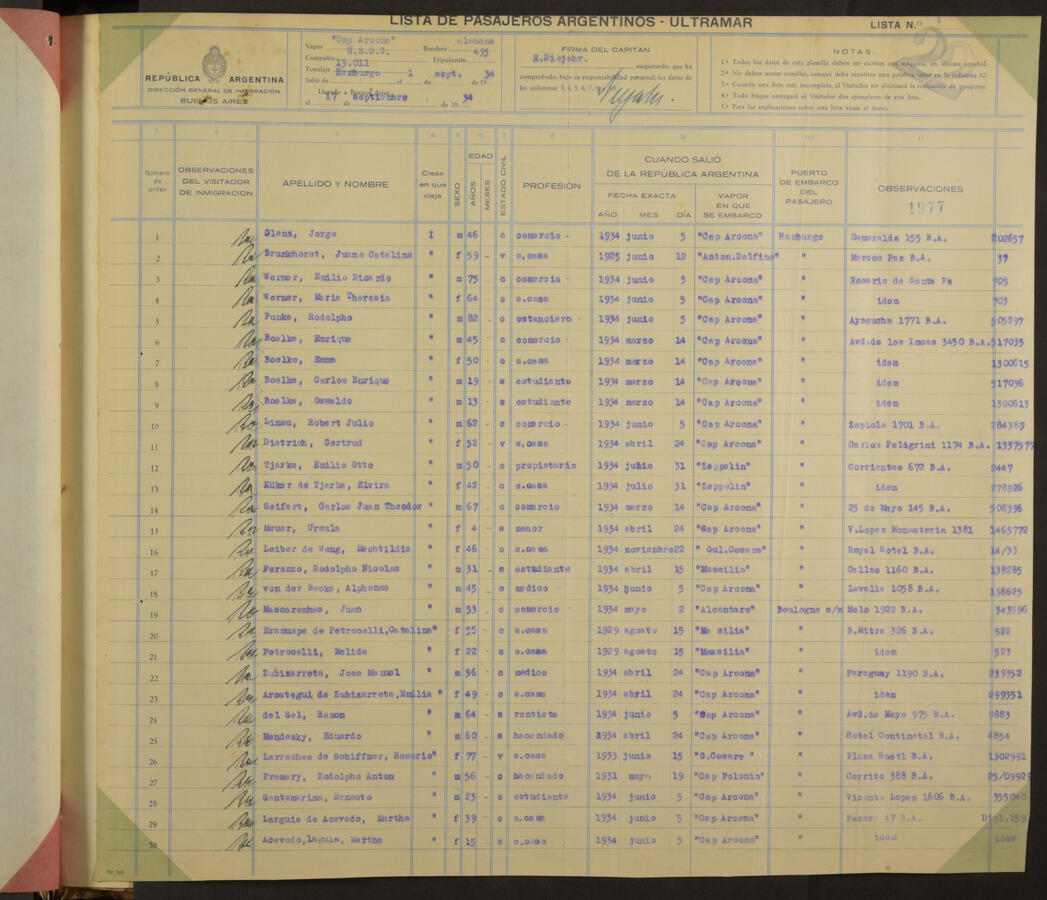 LISTA DE PASAJEROS ARGENTINOS - ULTRAMAR
LISTA N.º
REPÚBLICA ARGENTINA
DIRECCIÓN GENERAL DE INMIGRACIÓN
BUENOS AIRES
Vapor "Cap Arcona" Bandera alemana
Compañía H.S.D.G. Tripulación 435
Tonelaje 15.011
Salió de Hamburgo el 1 de sept. de 19 34
Llegado a Buenos Aires
el 17 de Septiembre de 19 34
FIRMA DEL CAPITAN
R.Niejahr. asegurando, que ha
comprobado, bajo su responsabilidad personal, los datos de
las columnas 3, 4, 5, 6, 7, 8 y 10.
NOTAS:
1.º Todos los datos de esta planilla deben ser escritos con máquina, en idioma español.
2.º No deben usarse comillas, aunque deba repetirse una palabra, salvo en la columna 10.
3.º Cuando una lista esté incompleta, el Visitador no efectuará la revisación de pasajeros.
4.º Todo buque entregará el Visitador dos ejemplares de esta lista.
5.º Para las explicaciones sobre esta lista véase al dorso.
1 2 3 4 5 6 7 8 9 10 11
Número de orden
OBSERVACIONES DEL VISITADOR DE INMIGRACION
APELLIDO Y NOMBRE
Clase en que viaja
SEXO
EDAD
AÑOS
MESES
ESTADO CIVIL
PROFESIÓN
CUANDO SALIÓ DE LA REPÚBLICA ARGENTINA
FECHA EXACTA
AÑO MES DÍA
VAPOR EN QUE SE EMBARCO
PUERTO DE EMBARCO DEL PASAJERO
OBSERVACIONES
1977
1 Glenz, Jorge I m 46 - c comercio - 1934 junio 5 "Cap Arcona" Hamburgo Esmeralda 155 B.A. 202657
2 Brunkhorst, Juana Catalina " f 59 - v s.casa 1925 junio 12 "Anton.Delfino" " Marcos Paz B.A. 37
3 Werner, Emilio Ricardo " m 75 - c comercio - 1934 junio 5 "Cap Arcona" " Rosario de Santa Fe 705
4 Werner, Maria Theresia " f 64 - c s.casa 1934 junio 5 "Cap Arcona" " idem 703
5 Funke, Rodolpho " m 82 - c estanciero - 1934 junio 5 "Cap Arcona" " Ayacucha 1771 B.A. 505297
6 Boelke, Enrique " m 45 - c comercio - 1934 marzo 14 "Cap Arcona" " Avd.de los Incas 3450 B.A. 517035
7 Boelke, Emma " f 50 - c s.casa 1934 marzo 14 "Cap Arcona" " idem 1300615
8 Boelke, Carlos Enrique " m 19 - s estudiante 1934 marzo 14 "Cap Arcona" " idem 517036
9 Boelke, Oswaldo " m 13 - s estudiante 1934 marzo 14 "Cap Arcona" " idem 1300613
10 Linau, Robert Julio " m 62 - c comercio - 1934 junio 5 "Cap Arcona" " Zapiola 1701 B.A. 284389
11 Dietrich, Gertrud " f 52 - v s.casa 1934 abril 24 "Cap Arcona" " Carlos Peligrini 1174 B.A. 1337577
12 Tjarks, Emilio Otto " m 50 - c propietario 1934 julio 31 "Zeppelin" " Corrientes 672 B.A. 2447
13 Küker de Tjarks, Elvira " f 42 - c s.casa 1934 julio 31 "Zeppelin" " idem 278926
14 Geifert, Carlos Juan Theodor " m 67 - c comercio 1934 marzo 14 "Cap Arcona" " 25 de Mayo 145 B.A. 508396
15 Meuer, Ursula " f 4 - s menor 1934 abril 24 "Cap Arcona" " V.Lopez Monasteria 1381 1465772
16 Leiber de Wang, Mechtildis " f 46 - c s.casa 1934 noviembre 22 " Gul.Cesare" " Royal Hotel B.A. 14/33
17 Perazzo, Rodolpho Nicolas " m 31 - s estudiante 1934 abril 15 "Massilia" " Callao 1160 B.A. 138285
18 von der Becke, Alphonso " m 45 - s medico - 1934 junio 5 "Cap Arcona" " Lavalle 1058 B.A. 198625
19 Mascarenhas, Juan " m 53 - c comercio - 1934 mayo 2 "Alcantara" Boulogne s/m Melo 1922 B.A. 343596
20 Erasuape de Petrocelli,Catalina " f 55 - c s.casa 1929 agosto 15 "Ma silia" " B.Mitre 326 B.A. 522
21 Petrocelli, Nelida " f 22 - s s.casa 1929 agosto 15 "Massilia" " idem 523
22 Zubizarreta, Jose Manuel " m 56 - c medico 1934 abril 24 "Cap Arcona" " Paraguay 1190 B.A. 239352
23 Arostegui de Zubizarreta,Emilia " f 49 - c s.casa 1934 abril 24 "Cap Arcona" " idem 299351
24 del Sel, Ramon " m 64 - s rentista 1934 junio 5 "Cap Arcona" " Avd.de Mayo 975 B.A. 9883
25 Mendesky, Eduardo " m 60 - s hacendado 1934 abril 24 "Cap Arcona" " Hotel Continetal B.A. 4854
26 Larrachea de Schiffner, Rosario " f 77 - v s.casa 1933 junio 15 "G.Cesare " " Plaza Hoetl B.A. 1302991
27 Fremery, Rodolpho Anton " m 56 - c hacendado 1931 mayo 19 "Cap Polonio" " Cerrito 388 B.A. 25/09929
28 Santamarina, Ernesto " m 23 - s estudiante 1934 junio 5 "Cap Arcona" " Vicente Lopez 1606 B.A.
29 Larguia de Acevedo, Martha " f 39 - c s.casa 1934 junio 5 "Cap Arcona" " Parera 47 B.A. Dipl.159
30 Acevedo,Laguia, Martha " f 15 - s s.casa 1934 junio 5 "Cap Arcona" " idem idem